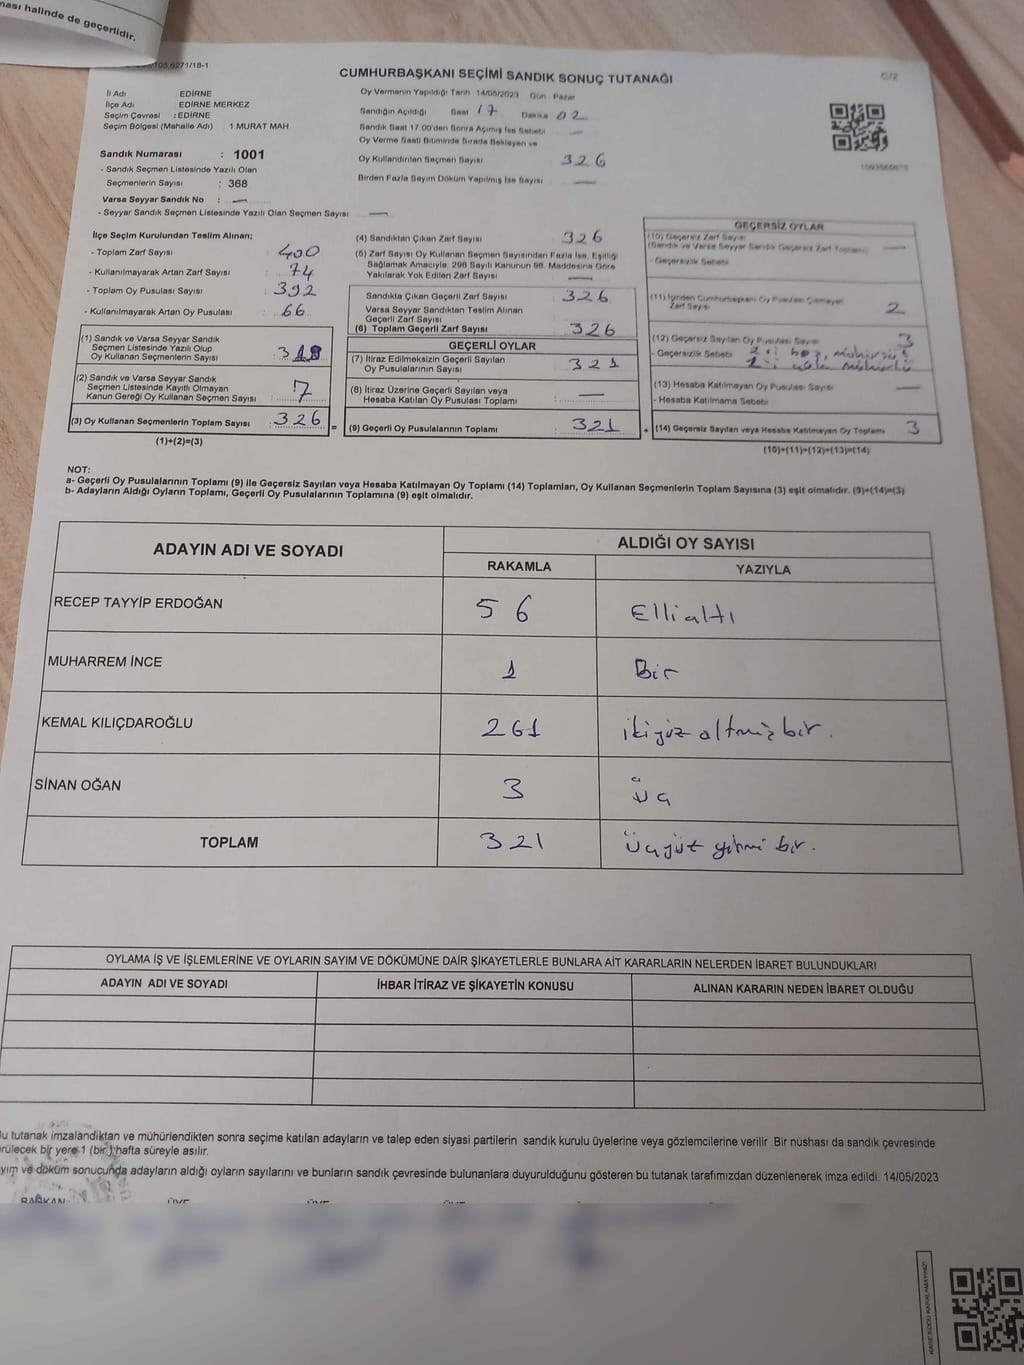 ması halinde de geçerlidir.
CUMHURBAŞKANI SEÇİMİ SANDIK SONUÇ TUTANAĞI
C/2
İl Adı : EDİRNE
İlçe Adı : EDİRNE MERKEZ
Seçim Çevresi : EDİRNE
Seçim Bölgesi (Mahalle Adı) : 1.MURAT MAH
Sandık Numarası : 1001
- Sandık Seçmen Listesinde Yazılı Olan
Seçmenlerin Sayısı : 368
Varsa Seyyar Sandık No : —
- Seyyar Sandık Seçmen Listesinde Yazılı Olan Seçmen Sayısı : —
Oy Vermenin Yapıldığı Tarih 14/05/2023 Gün Pazar
Sandığın Açıldığı Saat 17 Dakika 02
Sandık Saat 17.00'den Sonra Açılmış İse Sebebi —
Oy Verme Saati Bitiminde Sırada Bekleyen ve
Oy Kullandırılan Seçmen Sayısı 326
Birden Fazla Sayım Döküm Yapılmış İse Sayısı —
İlçe Seçim Kurulundan Teslim Alınan;
- Toplam Zarf Sayısı : 400
- Kullanılmayarak Artan Zarf Sayısı : 74
- Toplam Oy Pusulası Sayısı : 392
- Kullanılmayarak Artan Oy Pusulası : 66
(1) Sandık ve Varsa Seyyar Sandık
Seçmen Listesinde Yazılı Olup
Oy Kullanan Seçmenlerin Sayısı :
(2) Sandık ve Varsa Seyyar Sandık
Seçmen Listesinde Kayıtlı Olmayan
Kanun Gereği Oy Kullanan Seçmen Sayısı : 7
(3) Oy Kullanan Seçmenlerin Toplam Sayısı : 326
(1)+(2)=(3)
(4) Sandıktan Çıkan Zarf Sayısı : 326
(5) Zarf Sayısı Oy Kullanan Seçmen Sayısından Fazla İse, Eşitliği
Sağlamak Amacıyla, 298 Sayılı Kanunun 98. Maddesine Göre
Yakılarak Yok Edilen Zarf Sayısı : —
Sandıkta Çıkan Geçerli Zarf Sayısı : 326
Varsa Seyyar Sandıktan Teslim Alınan
Geçerli Zarf Sayısı :
(6) Toplam Geçerli Zarf Sayısı : 326
GEÇERLİ OYLAR
(7) İtiraz Edilmeksizin Geçerli Sayılan
Oy Pusulalarının Sayısı : 321
(8) İtiraz Üzerine Geçerli Sayılan veya
Hesaba Katılan Oy Pusulası Toplamı : —
= (9) Geçerli Oy Pusulalarının Toplamı : 321
GEÇERSİZ OYLAR
(10) Geçersiz Zarf Sayısı
(Sandık ve Varsa Seyyar Sandık Geçersiz Zarf Toplamı) —
- Geçersizlik Sebebi
(11) İçinden Cumhurbaşkanı Oy Pusulası Çıkmayan
Zarf Sayısı 2
(12) Geçersiz Sayılan Oy Pusulası Sayısı 3
- Geçersizlik Sebebi 2: boş,
(13) Hesaba Katılmayan Oy Pusulası Sayısı —
- Hesaba Katılmama Sebebi
+ (14) Geçersiz Sayılan veya Hesaba Katılmayan Oy Toplamı 3
(10)+(11)+(12)+(13)=(14)
NOT:
a- Geçerli Oy Pusulalarının Toplamı (9) ile Geçersiz Sayılan veya Hesaba Katılmayan Oy Toplamı (14) Toplamları, Oy Kullanan Seçmenlerin Toplam Sayısına (3) eşit olmalıdır. (9)+(14)=(3)
b- Adayların Aldığı Oyların Toplamı, Geçerli Oy Pusulalarının Toplamına (9) eşit olmalıdır.
ADAYIN ADI VE SOYADI
ALDIĞI OY SAYISI
RAKAMLA YAZIYLA
RECEP TAYYİP ERDOĞAN 56 Ellialtı
MUHARREM İNCE 1 Bir
KEMAL KILIÇDAROĞLU 261 ikiyüz altmış bir.
SİNAN OĞAN 3 üç
TOPLAM 321 Üçyüz yirmi bir.
OYLAMA İŞ VE İŞLEMLERİNE VE OYLARIN SAYIM VE DÖKÜMÜNE DAİR ŞİKAYETLERLE BUNLARA AİT KARARLARIN NELERDEN İBARET BULUNDUKLARI
ADAYIN ADI VE SOYADI İHBAR İTİRAZ VE ŞİKAYETİN KONUSU ALINAN KARARIN NEDEN İBARET OLDUĞU
u tutanak imzalandıktan ve mühürlendikten sonra seçime katılan adayların ve talep eden siyasi partilerin sandık kurulu üyelerine veya gözlemcilerine verilir. Bir nüshası da sandık çevresinde
rülecek bir yere 1 (bir) hafta süreyle asılır.
yım ve döküm sonucunda adayların aldığı oyların sayılarını ve bunların sandık çevresinde bulunanlara duyurulduğunu gösteren bu tutanak tarafımızdan düzenlenerek imza edildi. 14/05/2023
BAŞKAN ÜYE